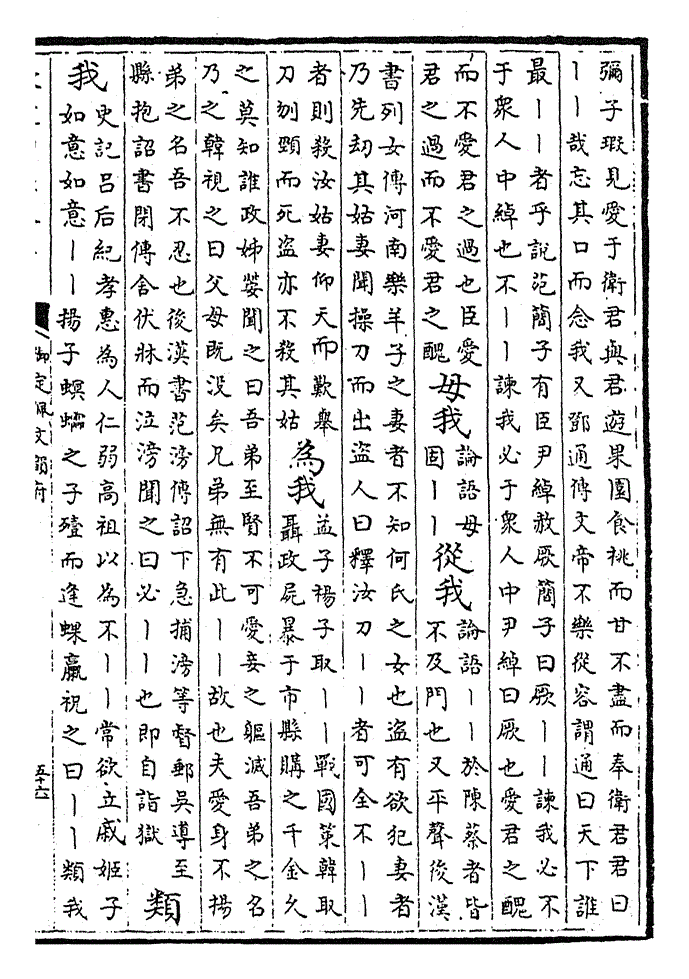 彌子瑕見愛于衛君與君遊果園食桃而甘不盡而奉衛君君曰
丨丨哉忘其口而念我又鄧通傳文帝不樂從容謂通曰天下誰
最丨丨者乎說苑簡子有臣尹綽赦厥簡子曰厥丨丨諫我必不
于衆人中綽也不丨丨諫我必于衆人中尹綽曰厥也愛君之醜
而不愛君之過也臣愛
君之過而不愛君之醜
毋我
論語毋
固丨丨
從我
論語丨丨於陳蔡者皆
不及門也又平聲後漢
書列女傳河南樂羊子之妻者不知何氏之女也盜有欲犯妻者
乃先刼其姑妻聞操刀而出盜人曰釋汝刀丨丨者可全不丨丨
者則殺汝姑妻仰天而歎舉
刀刎頸而死盜亦不殺其姑
為我
孟子楊子取丨丨戰國策韓取
聶政屍暴于市縣購之千金久
之莫知誰政姊嫈聞之曰吾弟至賢不可愛妾之軀滅吾弟之名
乃之韓視之曰父母既没矣兄弟無有此丨丨故也夫愛身不揚
弟之名吾不忍也後漢書范滂傳詔下急捕滂等督郵吳導至
縣抱詔書閉傳舍伏牀而泣滂聞之曰必丨丨也即自詣獄
類
我
史記吕后紀孝惠為人仁弱高祖以為不丨丨常欲立戚姬子
如意如意丨丨揚子螟蠕之子殪而逢蜾蠃祝之曰丨丨類我
御定佩文韻府
五十六